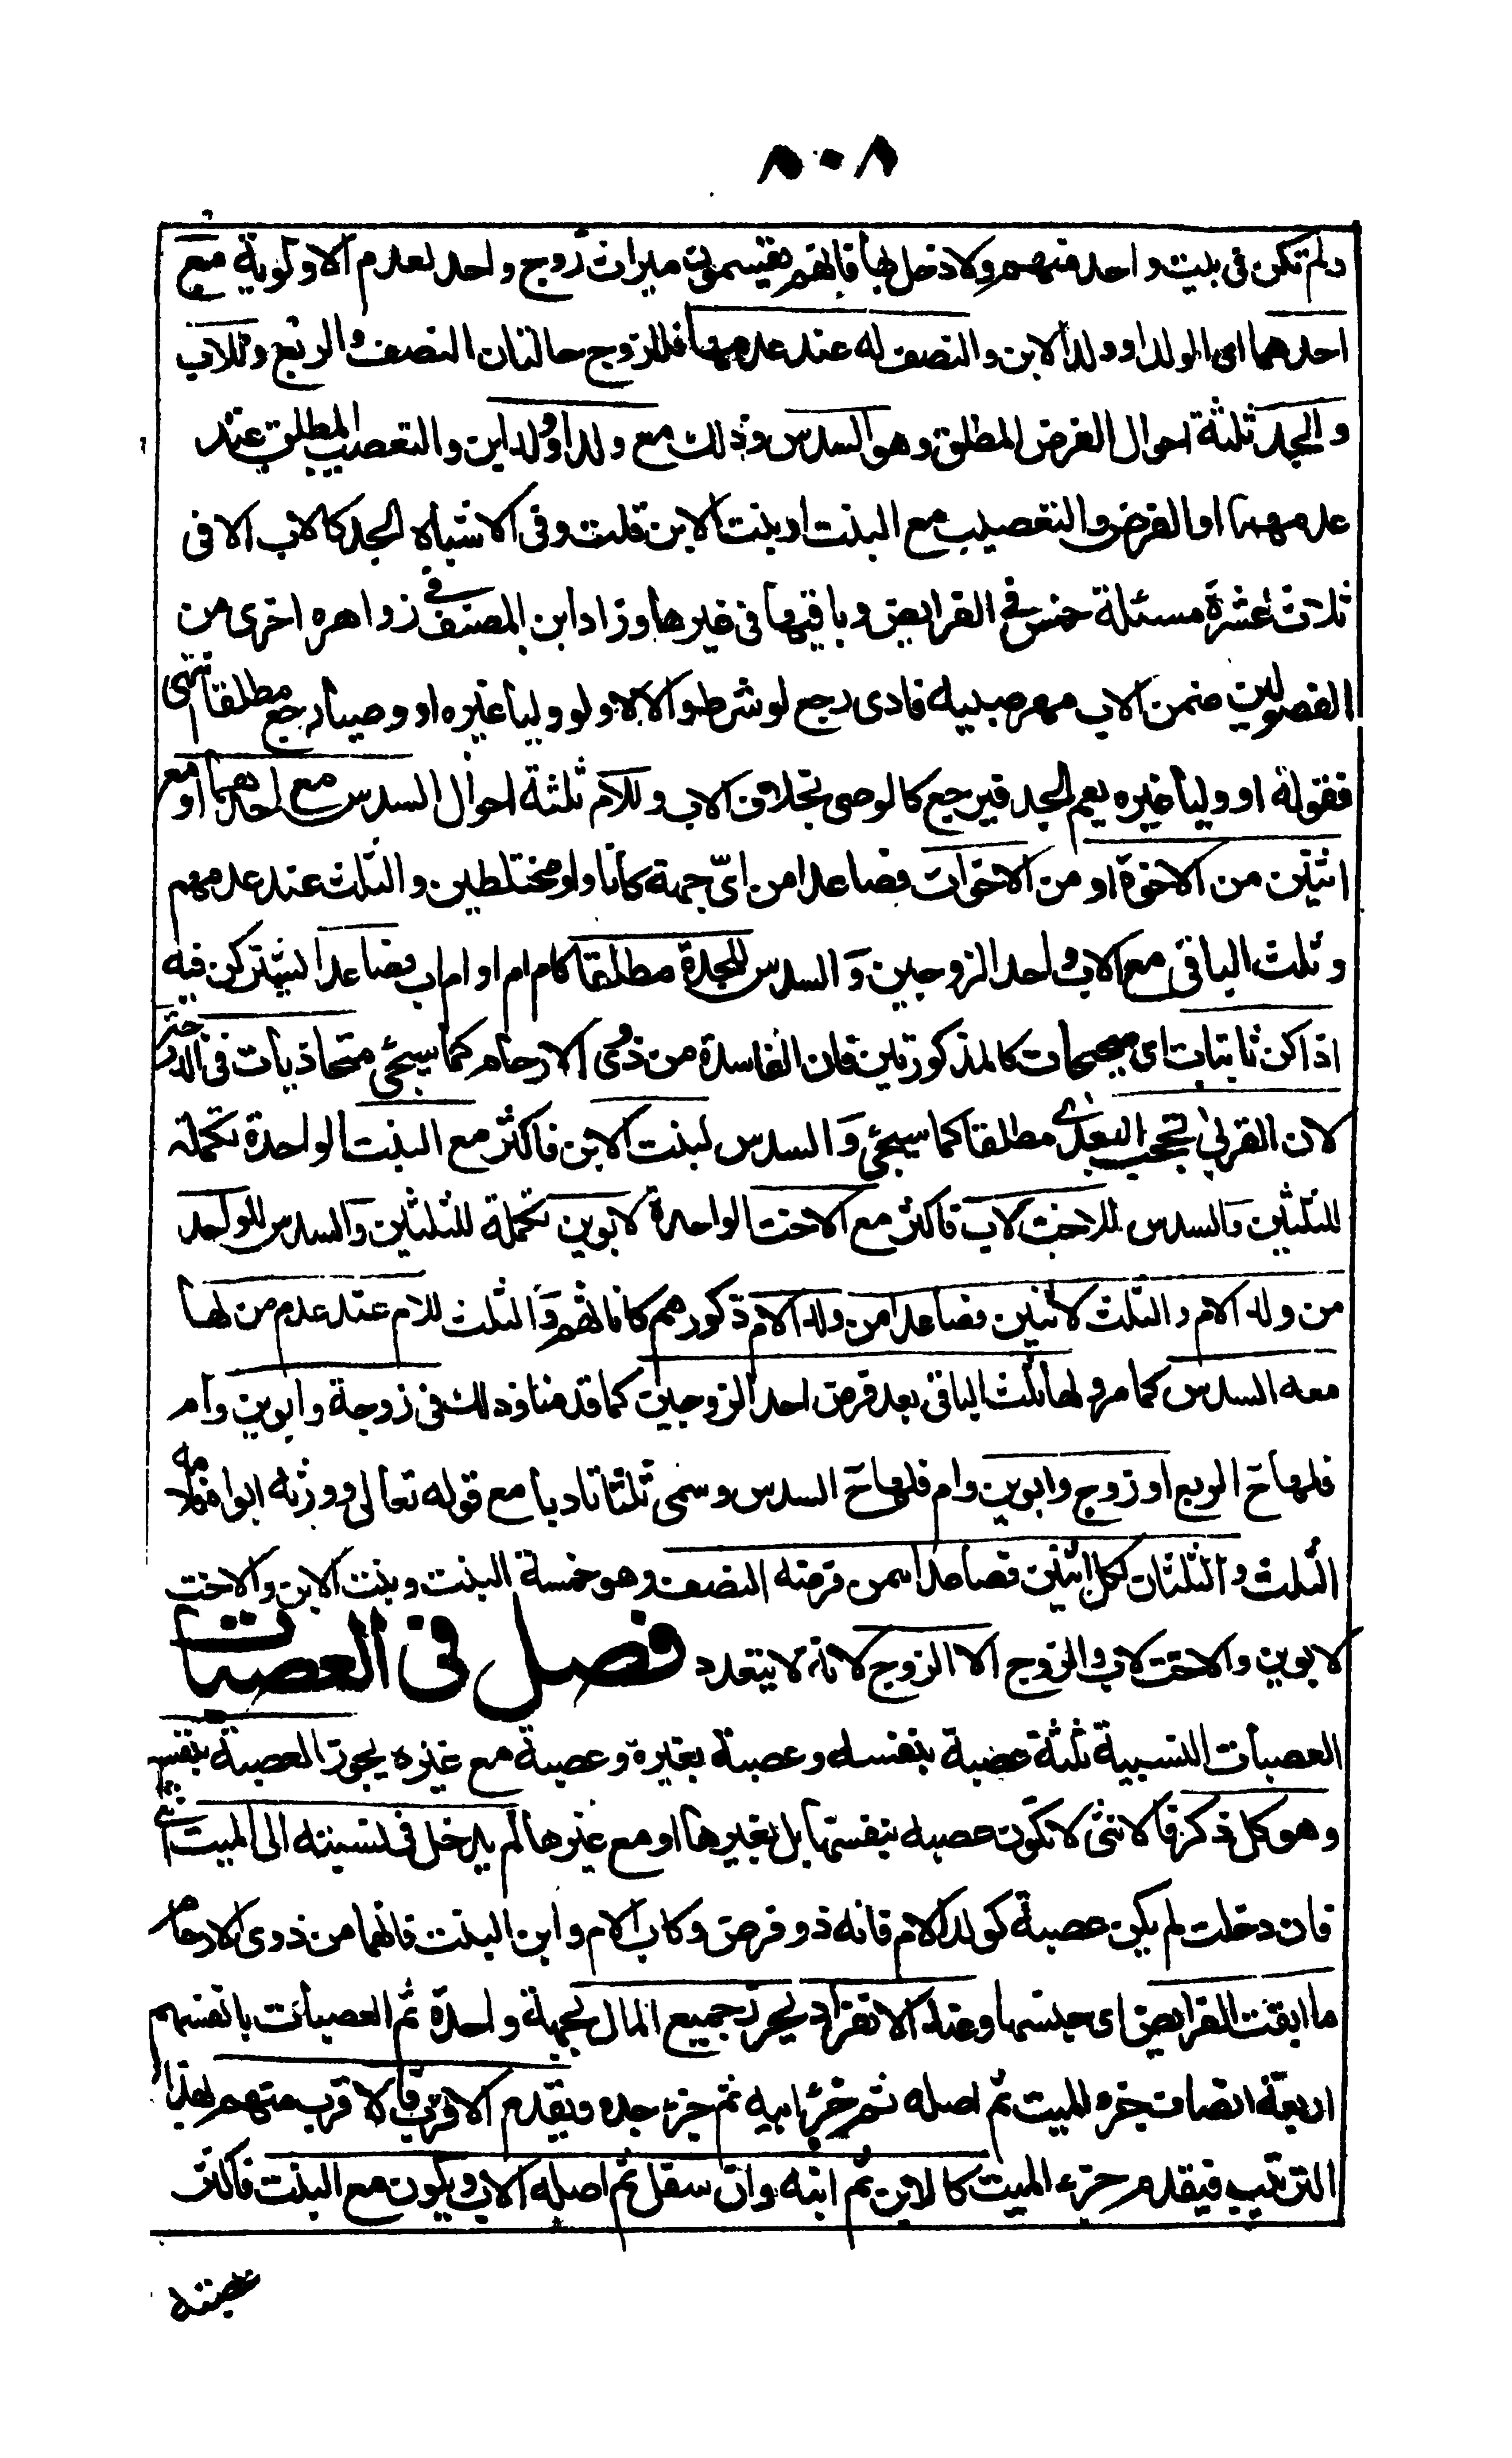 ٨٠٨
ولم تكن فى بيت واحد منهم ولا دخل بها فانهم يقتسمون ميراث زوج واحد لعدم الاولوية مع
احدهما اى الولد او ولد الابن والنصف له عند عدمهما فللزوج حالتان النصف والربع وللاب
والجد ثلثة احوال الفرض المطلق وهو السدس وذلك مع ولد او ولد ابن والتعصيب المطلق عند
عدمهما او الفرض والتعصيب مع البنت او بنت الابن قلت وفى الاشباه الجد كالاب الا فى
ثلاث عشرة مسئلة خمس فى الفرايض وباقيها فى غيرها وزاد ابن المصنف فى زواهره اخرى من
الفصولين ضمن الاب مهر صبيه فادى رجع لو شرط والا لا ولو وليا غيره او وصيا رجع مطلقا انتهى
فقوله او وليا غيره يعم الجد فيرجع كالوصى بخلاف الاب وللام ثلثة احوال السدس مع احدهما او مع
اثنين من الاخوة او من الاخوات فصاعدا من اىّ جهة كانا ولو مختلطين والثلث عند عدمهم
وثلث الباقى مع الاب واحد الزوجين وَ السدس للجدة مطلقا كام ام او ام اب فصاعدا يشتركن فيه
اذا كن ثابتات اى صحيحات كالمذكورتين فان الفاسدة من ذوى الارحام كما سيجئ متحاذيات فى الدرجة
لان القربى تحجب البعدى مطلقا كما سيجئ وَ السدس لبنت الابن فاكثر مع البنت الواحدة تكملة
للثلثين والسدس للاخت لاب فاكثر مع الاخت الواحدة لابوين تكملة للثلثين والسدس للواحد
من ولد الام والثلث لاثنين فصاعدا من ولد الام ذكورهم كاناثهم وَ الثلث للام عند عدم من لها
معه السدس كما مر ولها ثلث الباقى بعد فرض احد الزوجين كما قدمنا وذلك فى زوجة وابوين وام
فلها ح الربع او زوج وابوين وام فلها ح السدس وسمى ثلثا تادبا مع قوله تعالى وورثه ابواه فلامه
الثلث والثلثان لكل اثنين فصاعدا ممن فرضه النصف وهو خمسة البنت وبنت الابن والاخت
لابوين والاخت لاب والزوج الا الزوج لانه لا يتعدد فصل فى العصبات
العصبات النسبية ثلثة عصبة بنفسه وعصبة بغيره وعصبة مع غيره يحوز العصبة بنفسه
وهو كل ذكر فالانثى لا تكون عصبه بنفسها بل بغيرها او مع غيرها لم يدخل فى نسبته الى الميت انثى
فان دخلت لم يكن عصبة كولد الام فانه ذو فرض وكاب الام وابن البنت فانهما من ذوى الارحام
ما ابقت الفرايض اى جنسها وعند الانفراد يحرز جميع المال بجهة واحدة ثم العصبات بانفسهم
اربعة اصناف جزء الميت ثم اصله ثم جزء ابيه ثم جزء جده ويقدم الاقرب فالاقرب منهم بهذا
الترتيب فيقدم جزء الميت كالابن ثم ابنه وان سفل ثم اصله الاب ويكون مع البنت فاكثر
عصبته